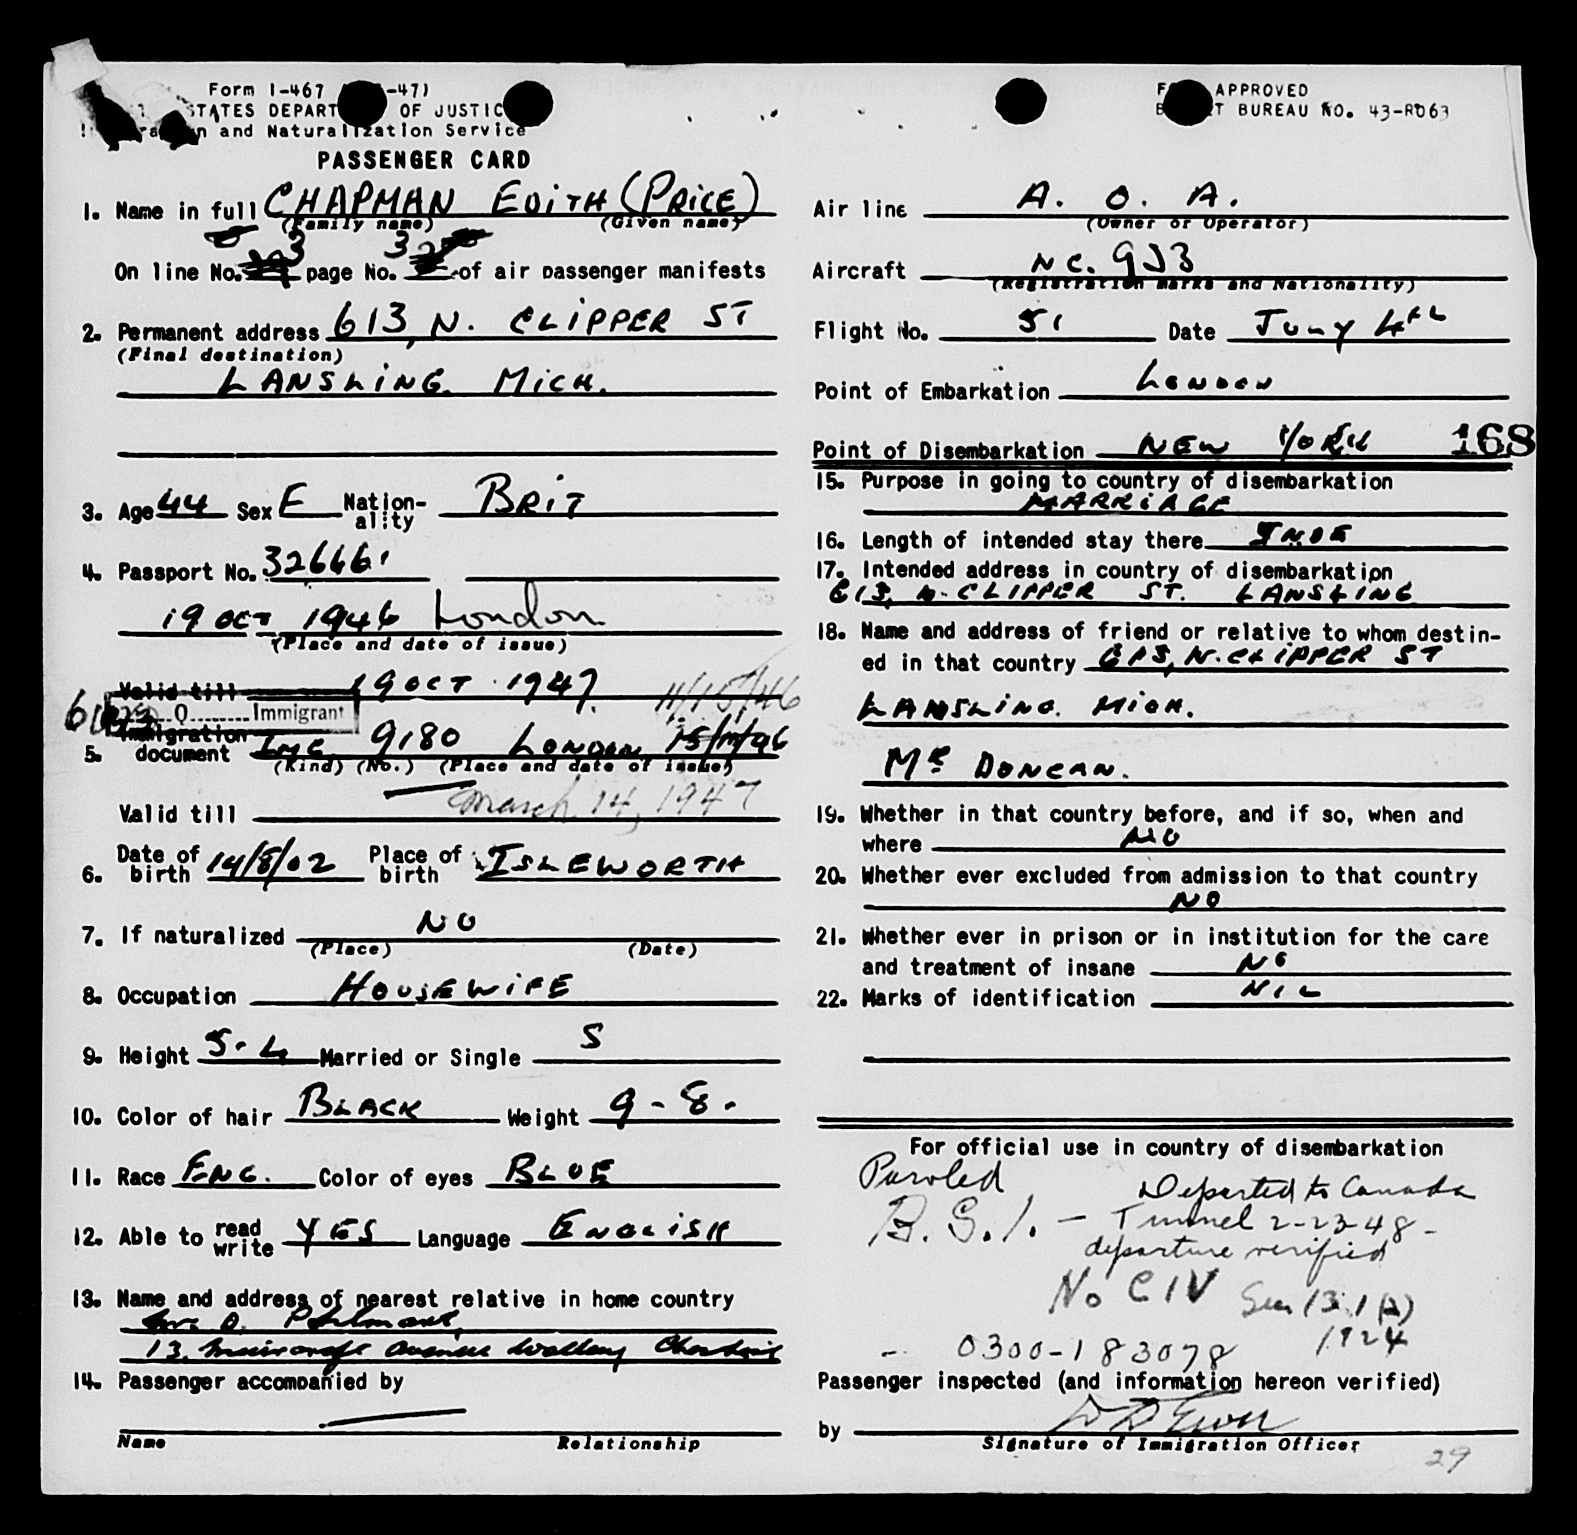 Form I-467 -47)
STATES DEPART OF JUSTIC
and Naturalization Service
PASSENGER CARD
1. Name in full CHAPMAN EDITH (PRICE)
(Family name) (Given name)
On line No. 3 page No. 3 of air passenger manifests
2. Permanent address 613, N. CLIPPER ST
(Final destination)
LANSLING. MICH.
3. Age 44 Sex F Nation-ality BRIT
4. Passport No. 326661
19 OCT 1946 London
(Place and date of issue)
Valid till 19 OCT. 1947. 11/15/46
Q Immigrant
5. Immigration document IMG. 9180 LONDON 15/11/46
(Kind) (No.) (Place and date of issue)
Valid till March 14, 1947
6. Date of birth 14/8/02 Place of birth ISLEWORTH
7. If naturalized NO
(Place) (Date)
8. Occupation HOUSEWIFE
9. Height 5-4 Married or Single S
10. Color of hair BLACK Weight 9-8.
11. Race ENG. Color of eyes BLUE
12. Able to read write YES Language ENGLISH
13. Name and address of nearest relative in home country
13, Avenue
14. Passenger accompanied by
Name Relationship
APPROVED
T BUREAU NO. 43-R063
Air line A. O. A.
(Owner or Operator)
Aircraft NC. 933
(Registration marks and Nationality)
Flight No. 51 Date
Point of Embarkation LONDON
Point of Disembarkation NEW YORK 168
15. Purpose in going to country of disembarkation
MARRIAGE
16. Length of intended stay there INDE
17. Intended address in country of disembarkation
613, N. CLIPPER ST. LANSLING
18. Name and address of friend or relative to whom destin-
ed in that country 613, N. CLIPPER ST
LANSLING. MICH.
Mr DUNCAN.
19. Whether in that country before, and if so, when and
where NO
20. Whether ever excluded from admission to that country
NO
21. Whether ever in prison or in institution for the care
and treatment of insane NO
22. Marks of identification NIL
For official use in country of disembarkation
Paroled
Departed to Canada
B.S.I. - Tunnel 2-23-48 -
departure verified
No CIV Sec 13.1 (A)
1924
- 0300-183078
Passenger inspected (and information hereon verified)
by
Signature of Immigration Officer
29